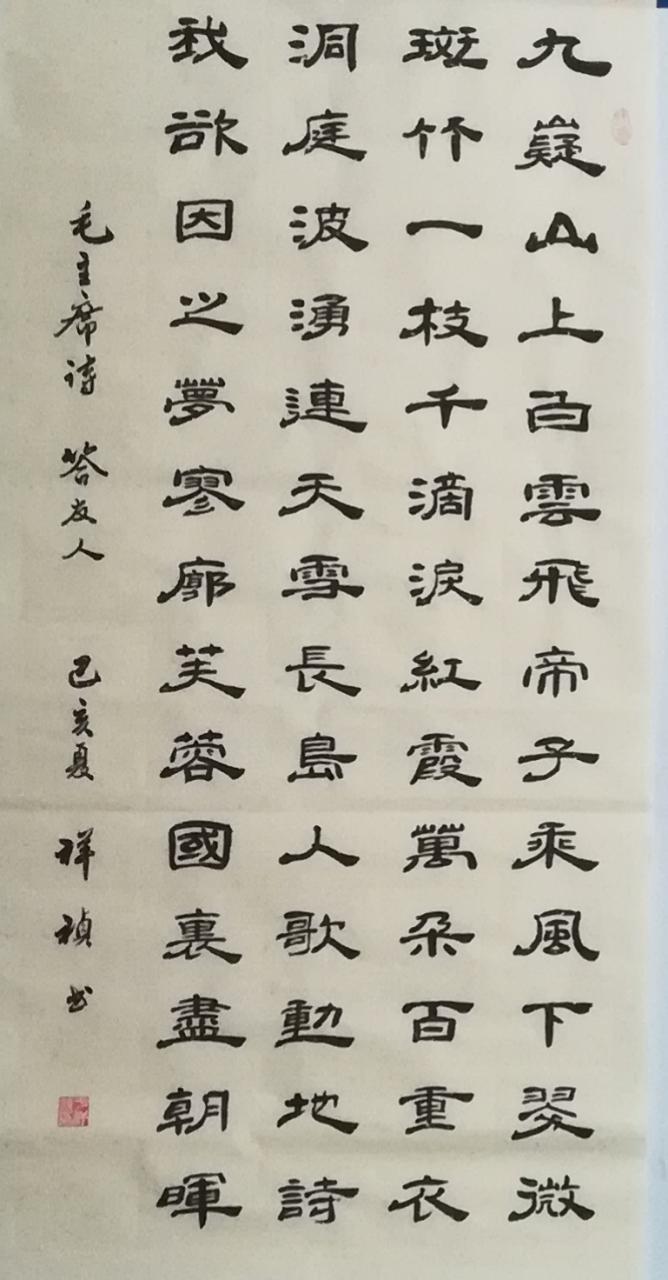 九嶷山上白雲飛帝子乘風下翠微
斑竹一枝千滴淚紅霞萬朵百重衣
洞庭波湧連天雪長島人歌動地詩
我欲因之夢寥廓芙蓉國裏盡朝暉
毛主席詩 答友人 己亥夏 祥禎书